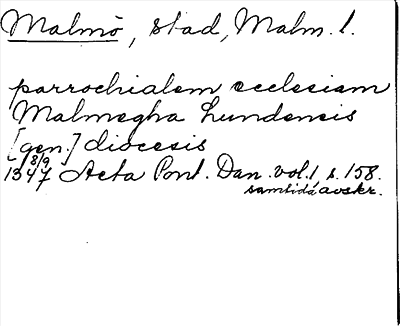 Malmö, stad, Malm. l.
parrochialem ecclesiam
Malmogha Lundensis
[gen.] diocesis
8/9
1347 Acta Pont. Dan. vol. 1, s. 158.
samtida avskr.